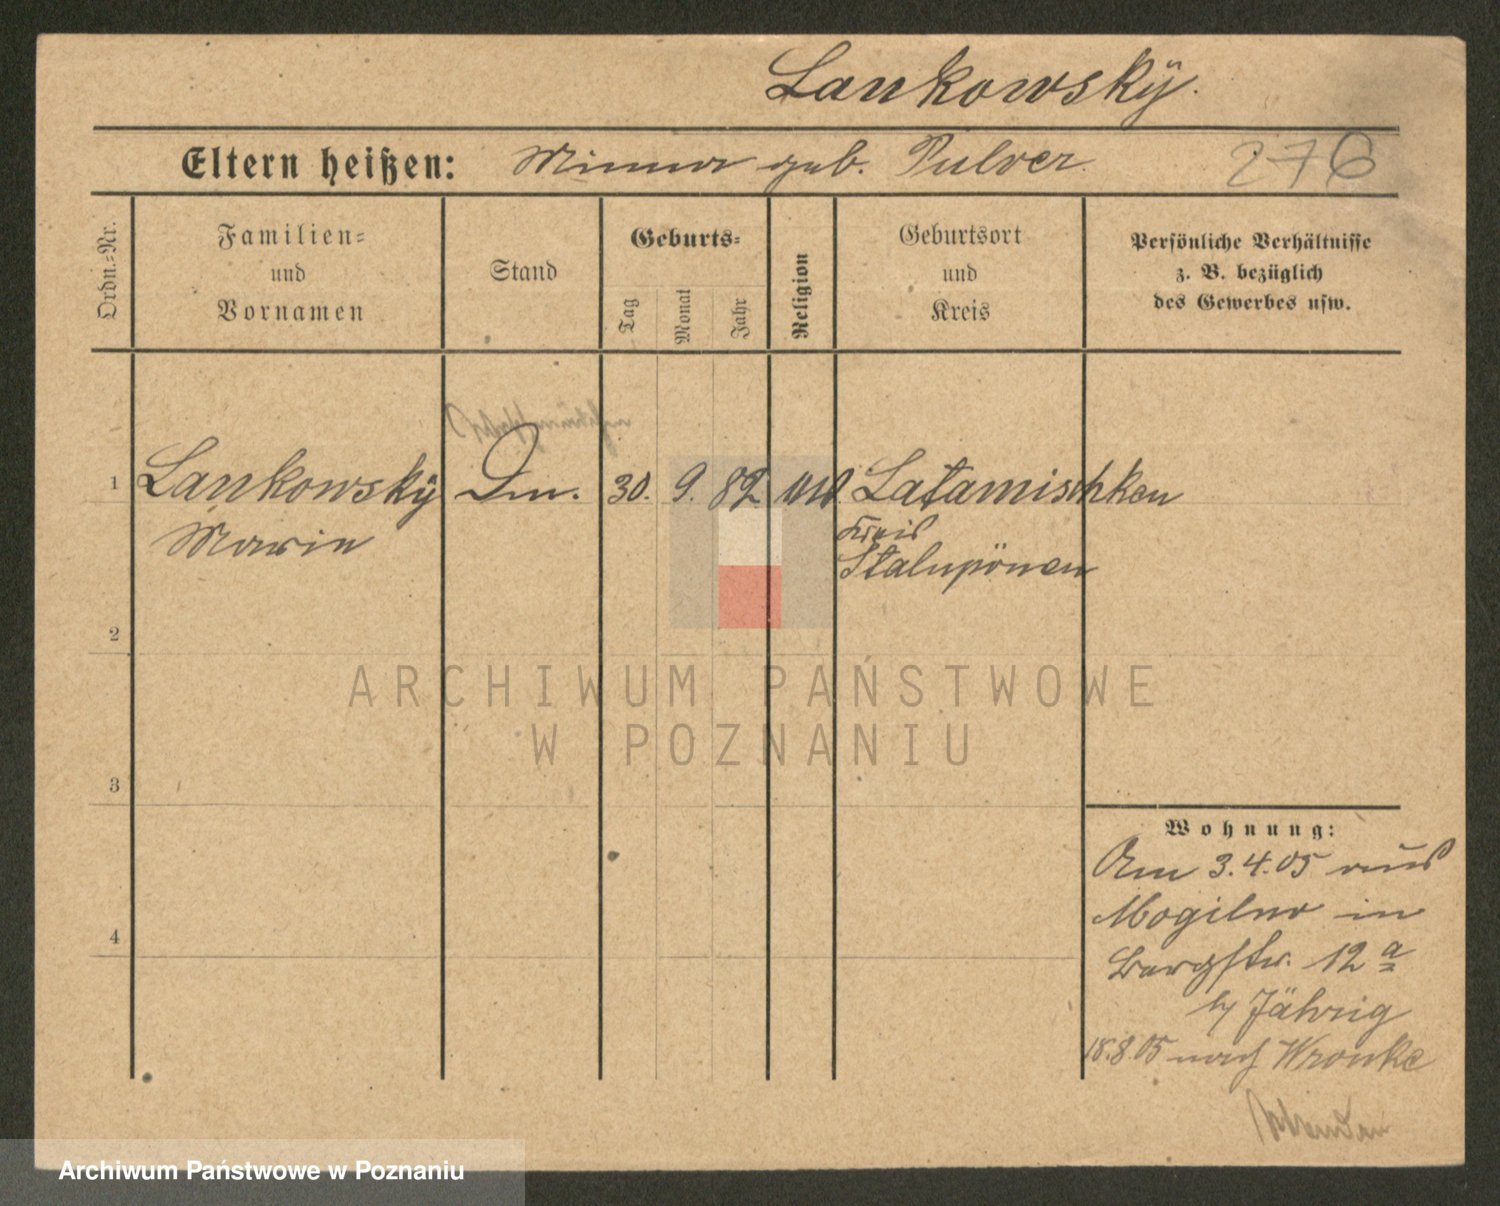 Lankowskÿ.
Eltern heißen: Minna geb. Pulver. 276
Ordn.=Nr.
Familien=
und
Vornamen
Stand
Geburts=
Tag
Monat
Jahr
Religion
Geburtsort
und
Kreis
Persönliche Verhältnisse
z. B. bezüglich
des Gewerbes usw.
1 Lankowskÿ 30. 9. 82 Latamischken
Marie
Kreis
Stalupönen
2
3
4
Wohnung:
Am 3.4.05 aus
Mogilno in
Bergstr. 12 a
b/ Jährig
18.8.05 nach Wronke
ARCHIWUM PAŃSTWOWE
W POZNANIU
Archiwum Państwowe w Poznaniu